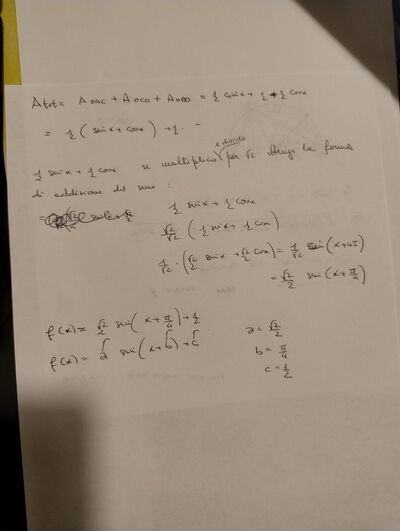 Atot = A OAC + A OCD + A OBD = 1/2 sinx + 1/2 + 1/2 cosx
= 1/2 ( sinx + cosx ) + 1/2.
e divido
1/2 sinx + 1/2 cosx se moltiplico per √2 ottengo la formula
di addizione del seno :
= 1/2 sinx + 1/2 cosx
√2/√2 ( 1/2 sinx + 1/2 cosx )
1/√2 · ( √2/2 sinx + √2/2 cosx ) = 1/√2 sin ( x + π/4 )
= √2/2 sin ( x + π/4 )
f(x) = √2/2 sin ( x + π/4 ) + 1/2 a = √2/2
f(x) = a sin ( x + b ) + c b = π/4
c = 1/2